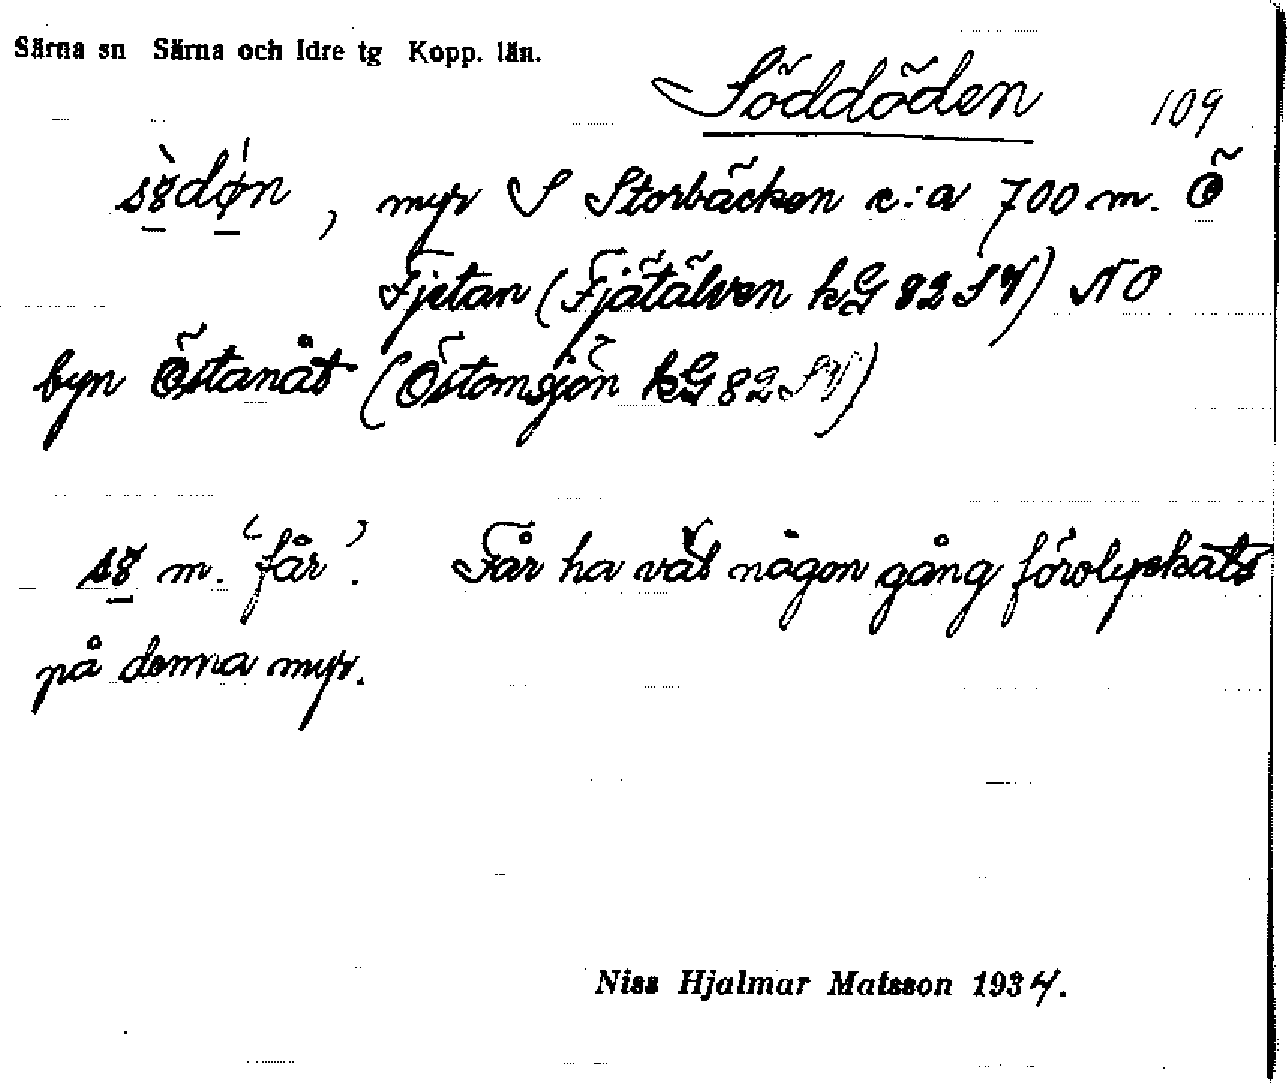 Särna sn Särna och Idre tg Kopp. län.
Söddöden 109
myr S Storbäcken c:a 700 m. Ö
Fjetan (Fjätälven kG 82 SV) NO
byn Östanåt (Östomsjön kG 82 SV)
m. "får". Får ha vät någon gång förolyckats
på denna myr.
Niss Hjalmar Matsson 1934.